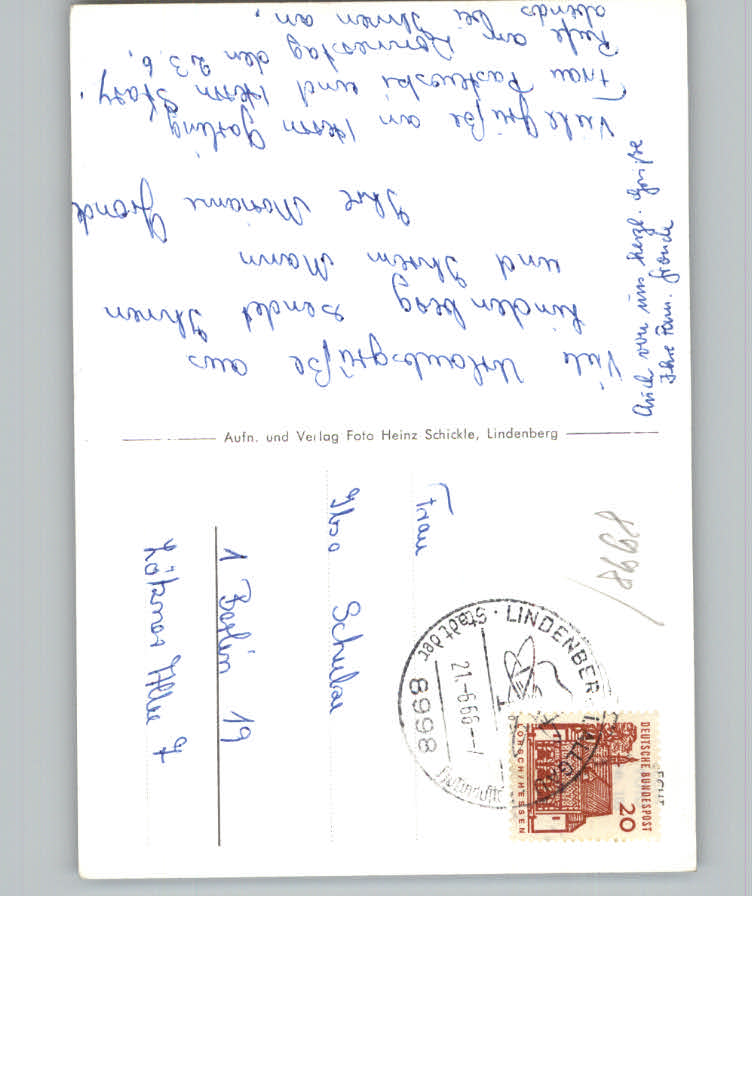 Viele Urlaubsgrüße aus
Lindenberg sendet Ihnen
und Ihrem Mann
Ihre Mariann Gronde
Viele Grüße an Herrn Garling
Frau Pastuski und Herrn Stary.
Rufe am Donnerstag den 23.6.
abends bei Ihnen an.
Auch von uns herzl. Grüße
Ihre Fam. Gronde
Aufn. und Verlag Foto Heinz Schickle, Lindenberg
Frau
Ilse Schulze
1 Berlin 19
Lötzener Allee 7
8998
LINDENBERG
Stadt der
21.-6.66--
8998
DEUTSCHE BUNDESPOST
20
LORSCH/HESSEN